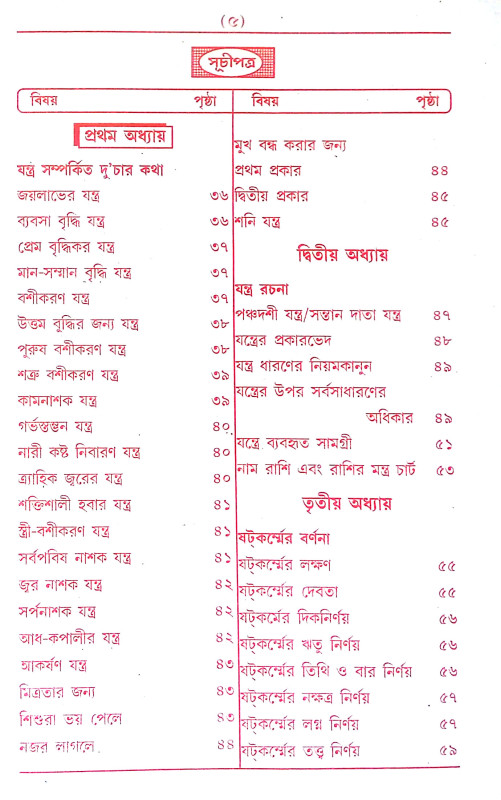 (৫)
সূচীপত্র
বিষয় পৃষ্ঠা
প্রথম অধ্যায়
যন্ত্র সম্পর্কিত দু'চার কথা
জয়লাভের যন্ত্র ৩৬
ব্যবসা বৃদ্ধি যন্ত্র ৩৬
প্রেম বৃদ্ধিকর যন্ত্র ৩৭
মান-সম্মান বৃদ্ধি যন্ত্র ৩৭
বশীকরণ যন্ত্র ৩৭
উত্তম বুদ্ধির জন্য যন্ত্র ৩৮
পুরুষ বশীকরণ যন্ত্র ৩৮
শত্রু বশীকরণ যন্ত্র ৩৯
কামনাশক যন্ত্র ৩৯
গর্ভস্তম্ভন যন্ত্র ৪০
নারী কষ্ট নিবারণ যন্ত্র ৪০
ত্র্যাহিক জ্বরের যন্ত্র ৪০
শক্তিশালী হবার যন্ত্র ৪১
স্ত্রী-বশীকরণ যন্ত্র ৪১
সর্বপবিষ নাশক যন্ত্র ৪১
জ্বর নাশক যন্ত্র ৪২
সর্পনাশক যন্ত্র ৪২
আধ-কপালীর যন্ত্র ৪২
আকর্ষণ যন্ত্র ৪৩
মিত্রতার জন্য ৪৩
শিশুরা ভয় পেলে ৪৩
নজর লাগলে ৪৪
বিষয় পৃষ্ঠা
মুখ বন্ধ করার জন্য
প্রথম প্রকার ৪৪
দ্বিতীয় প্রকার ৪৫
শনি যন্ত্র ৪৫
দ্বিতীয় অধ্যায়
যন্ত্র রচনা
পঞ্চদশী যন্ত্র/সন্তান দাতা যন্ত্র ৪৭
যন্ত্রের প্রকারভেদ ৪৮
যন্ত্র ধারণের নিয়মকানুন ৪৯
যন্ত্রের উপর সর্বসাধারণের
অধিকার ৪৯
যন্ত্রে ব্যবহৃত সামগ্রী ৫১
নাম রাশি এবং রাশির মন্ত্র চার্ট ৫৩
তৃতীয় অধ্যায়
ষট্‌কর্ম্মের বর্ণনা
ষট্‌কর্ম্মের লক্ষণ ৫৫
ষট্‌কর্ম্মের দেবতা ৫৫
ষট্‌কর্মের দিকনির্ণয় ৫৬
ষট্‌কর্ম্মের ঋতু নির্ণয় ৫৬
ষট্‌কর্ম্মের তিথি ও বার নির্ণয় ৫৬
ষট্‌কর্ম্মের নক্ষত্র নির্ণয় ৫৭
ষট্‌কর্ম্মের লগ্ন নির্ণয় ৫৭
ষট্‌কর্ম্মের তত্ত্ব নির্ণয় ৫৯